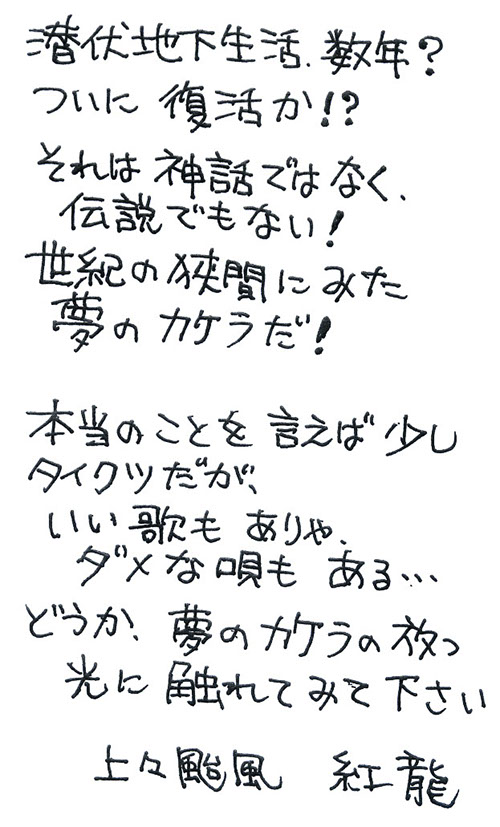 潜伏地下生活、数年?
ついに 復活か!?
それは 神話ではなく、
伝説でもない!
世紀の狭間にみた
夢の カケラだ!
本当のことを 言えば 少し
タイクツだが、
いい歌も ありゃ、
ダメな唄も ある…
どうか、夢のカケラの放つ
光に 触れてみて下さい
上々颱風 紅龍